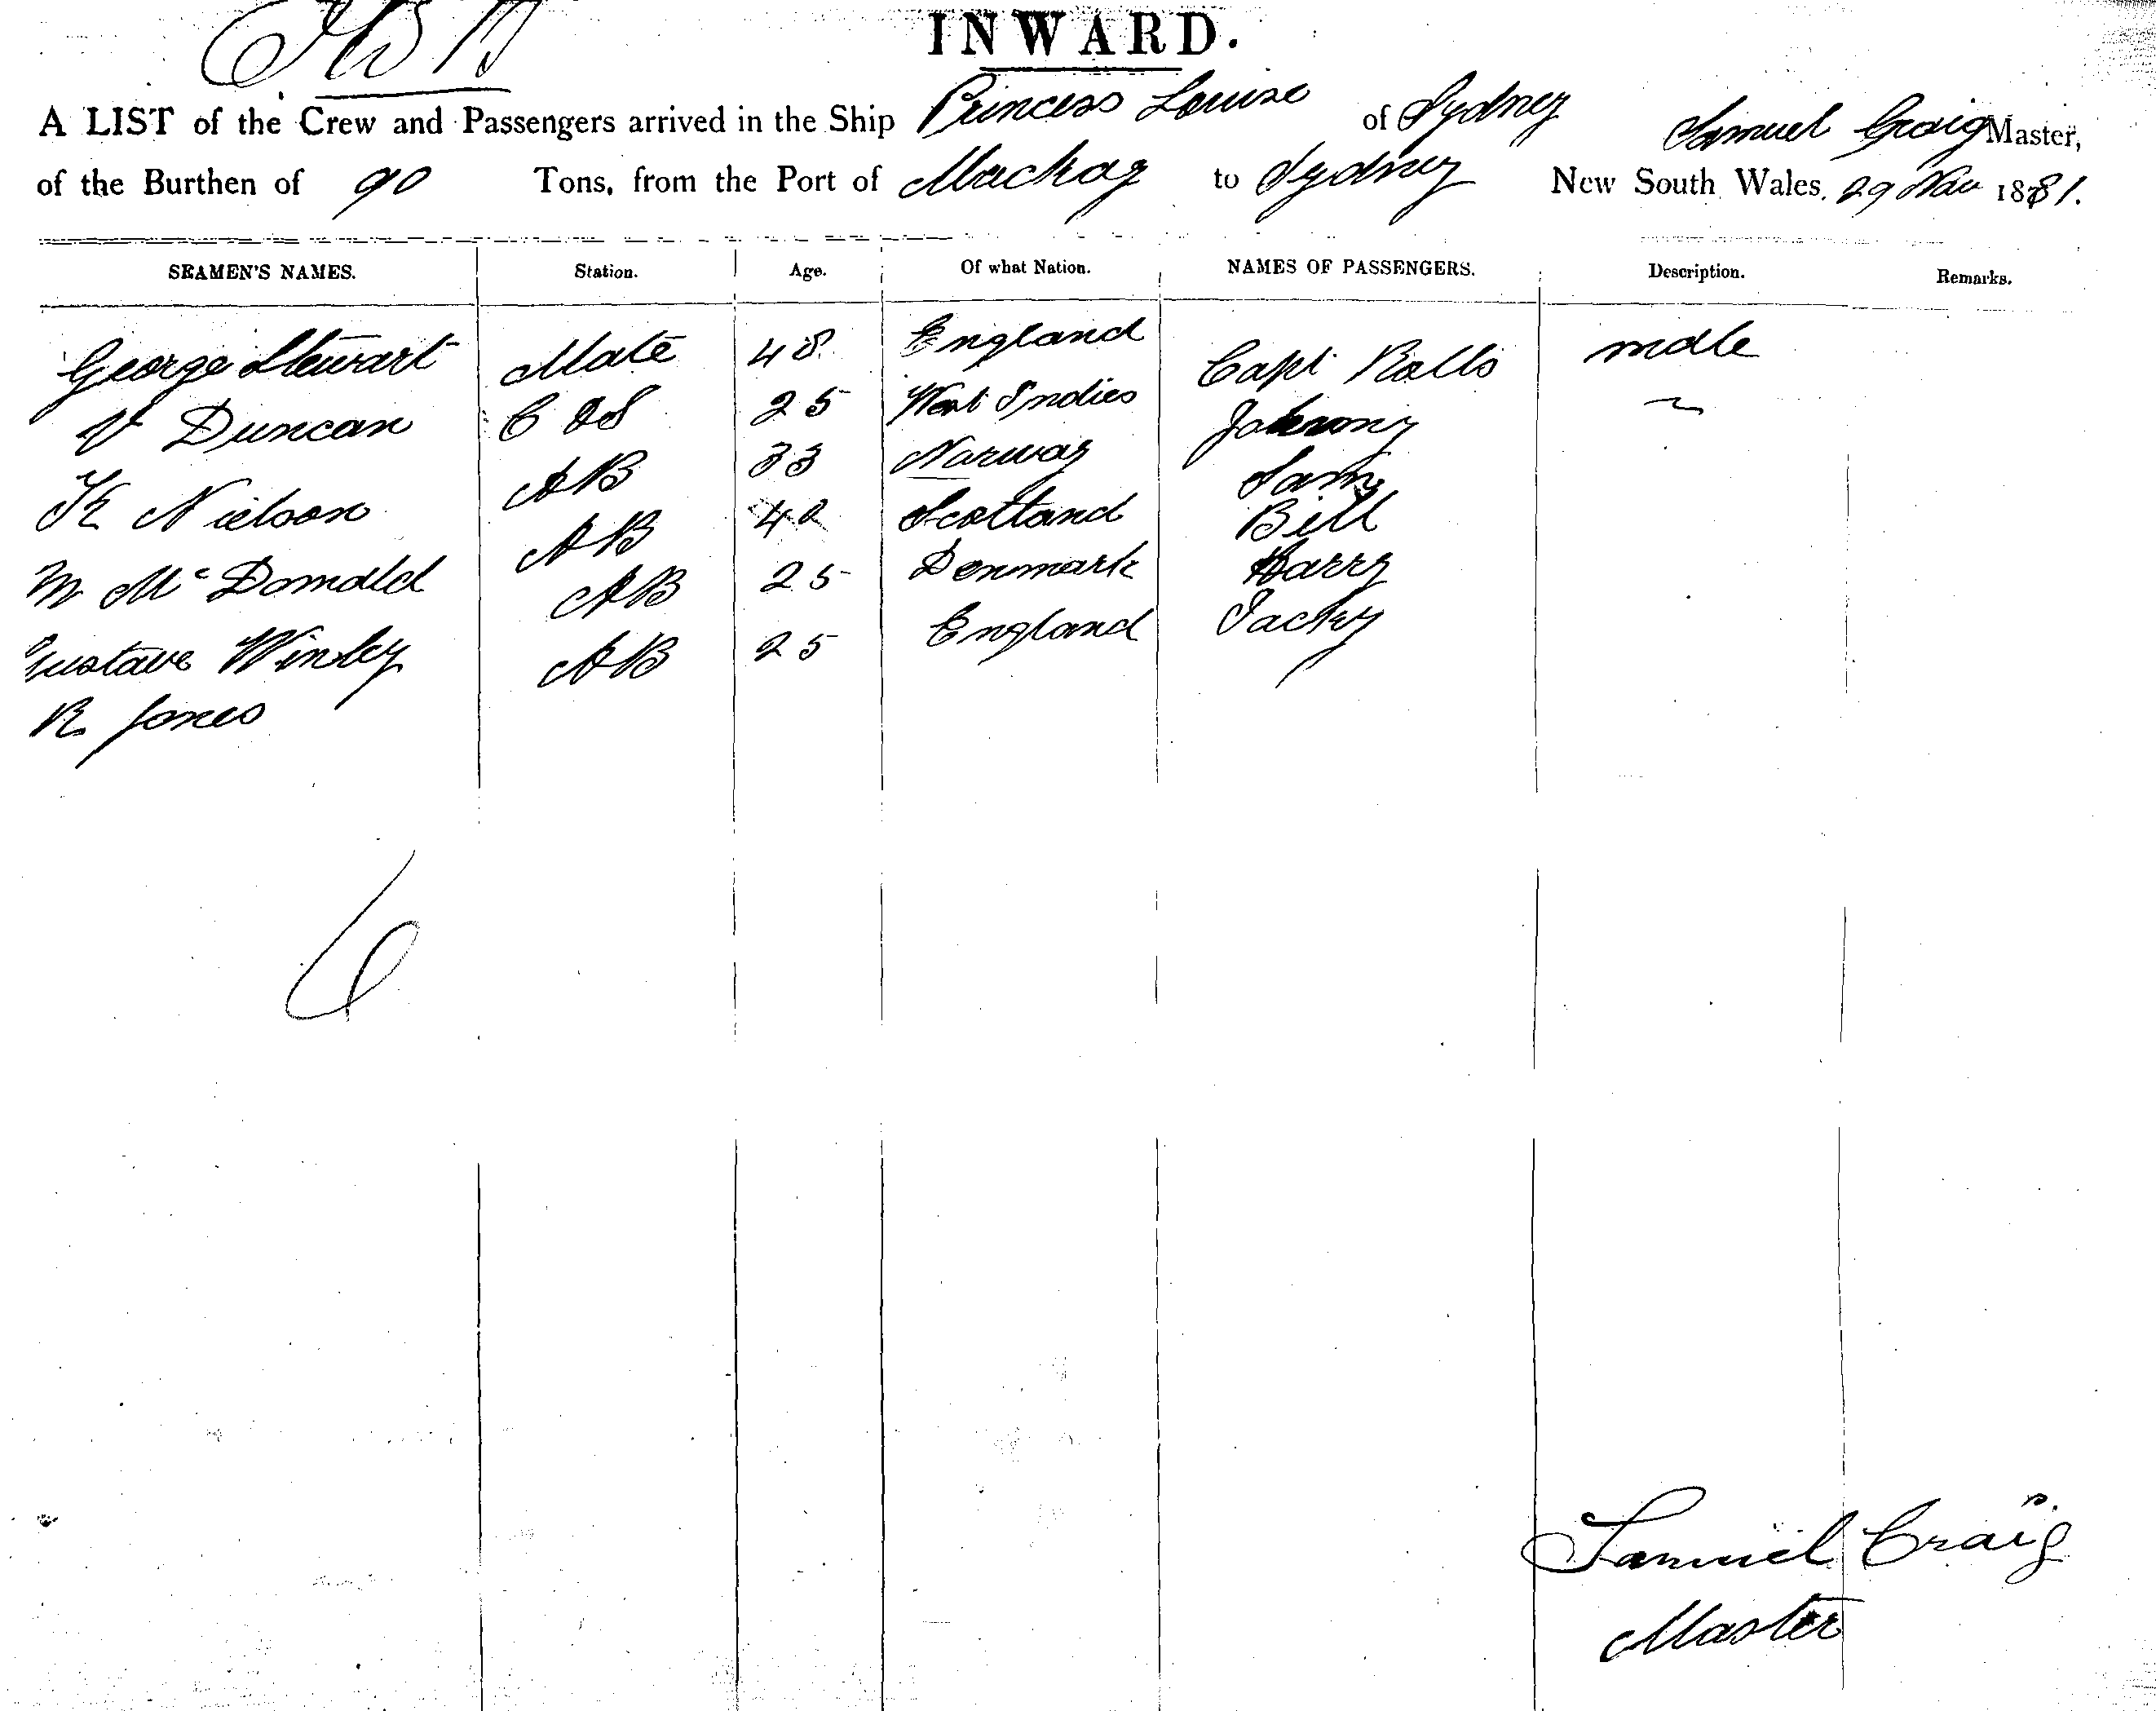 INWARD.
A LIST of the Crew and Passengers arrived in the Ship Princess Louise of Sydney Samuel Craig Master,
of the Burthen of 90 Tons, from the Port of Mackay to Sydney New South Wales, 29 Nov 1881.
SEAMEN'S NAMES. Station. Age. Of what Nation. NAMES OF PASSENGERS. Description. Remarks.
George Stewart Mate 48 England Capt Ralls male
V Duncan C & S 25 West Indies Johnny
K Nielson AB 33 Norway Sam
M McDonald AB 42 Scotland Bill
Gustave Winby AB 25 Denmark Harry
R Jones AB 25 England Jacky
6
Samuel Craig
Master